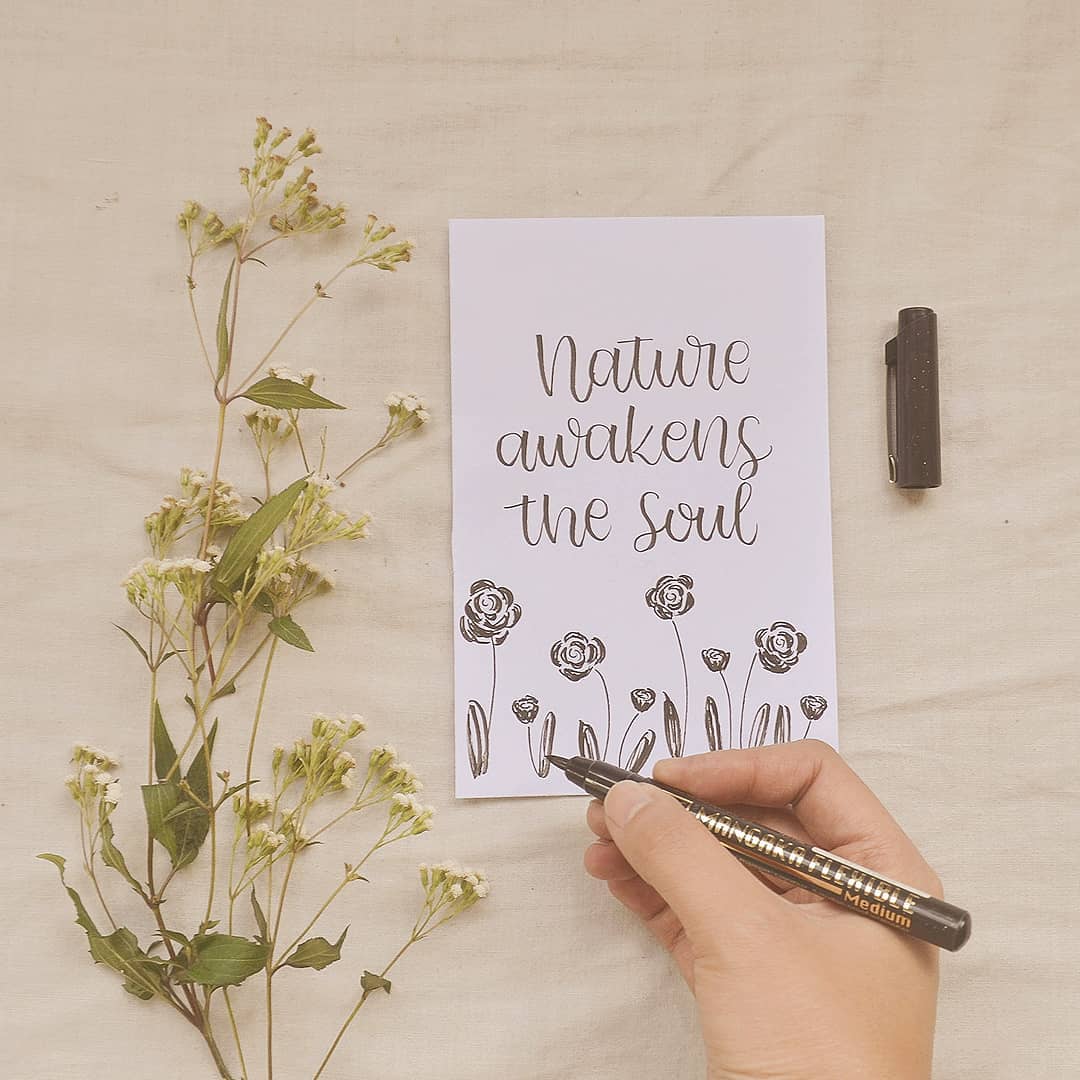 Nature
awakens
the soul
MANGAKA FLEXIBLE
Medium